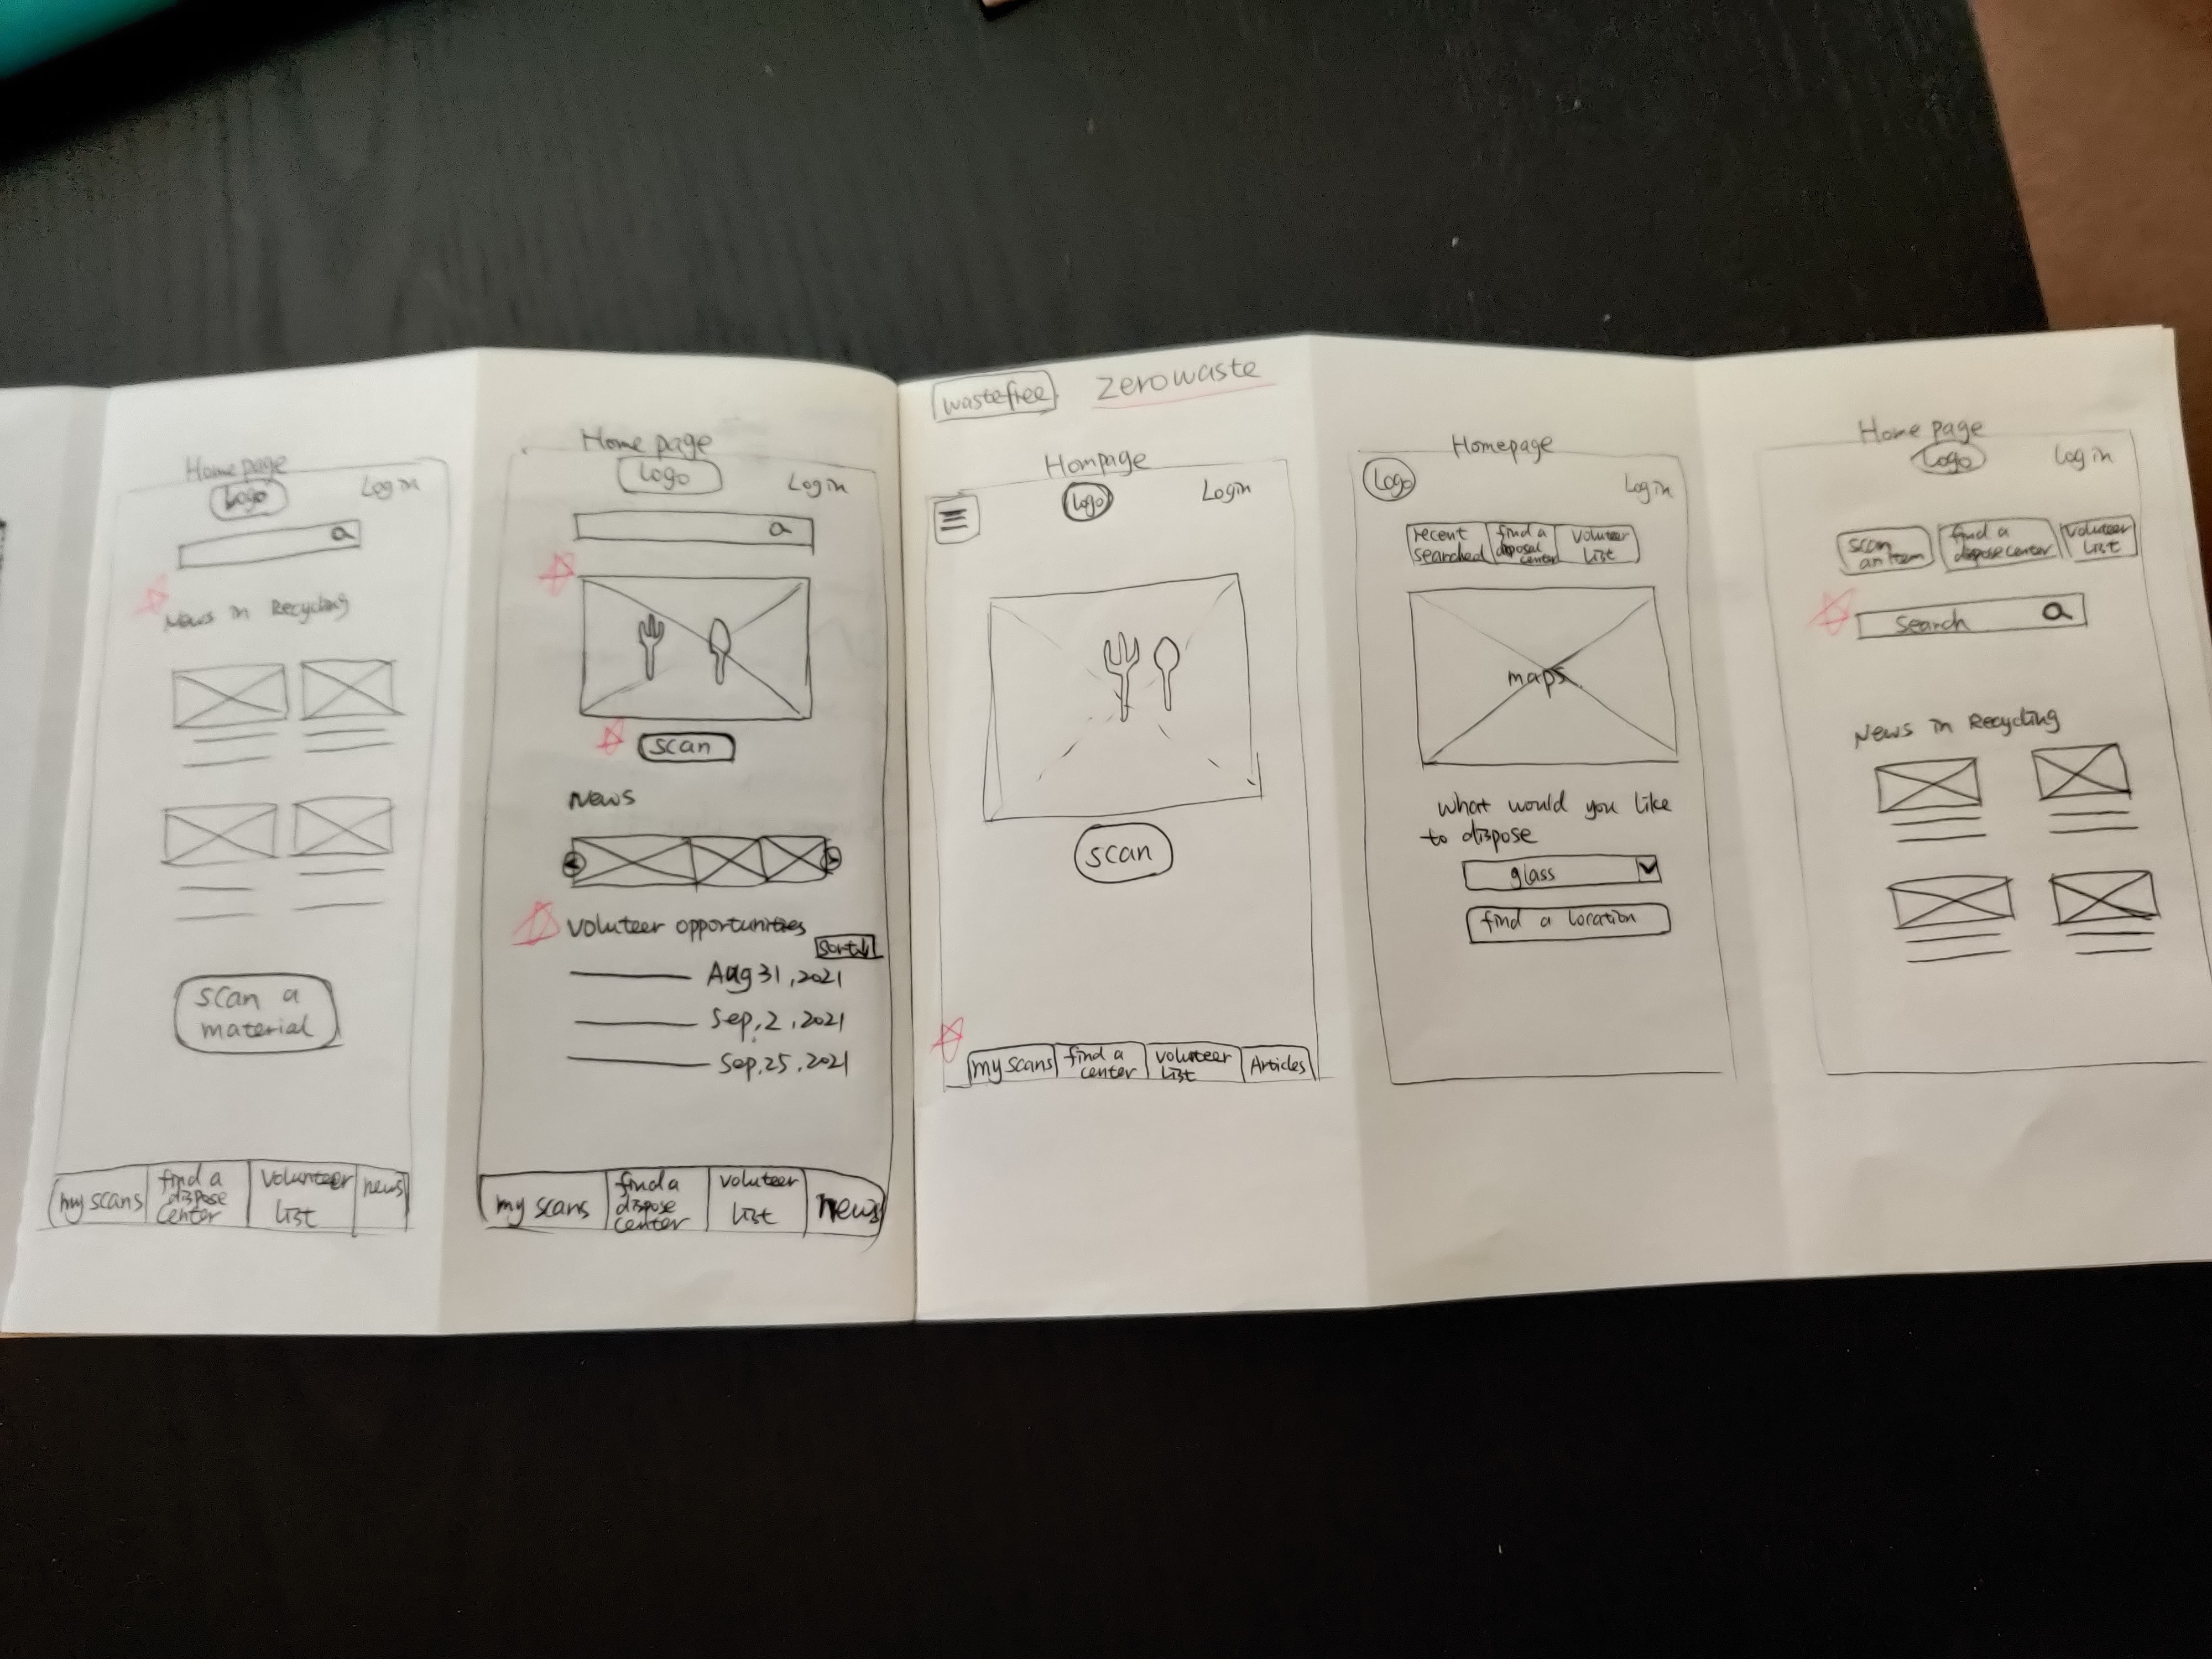 wastefree
zerowaste
Home page
Logo
Login
News in Recycling
scan a
material
my scans
find a
dispose
center
Volunteer
List
news
Home page
Logo
Login
scan
News
Voluteer opportunities
Sort
Aug 31, 2021
Sep, 2, 2021
Sep, 25, 2021
my scans
find a
dispose
center
voluteer
List
news
Hompage
Logo
Login
scan
my scans
find a
center
volunteer
List
Articles
Homepage
Logo
Login
recent
searched
find a
disposal
center
Voluteer
List
maps
what would you like
to dispose
glass
find a location
Home page
Logo
Log in
scan
an item
find a
dispose center
Voluteer
List
Search
News in Recycling